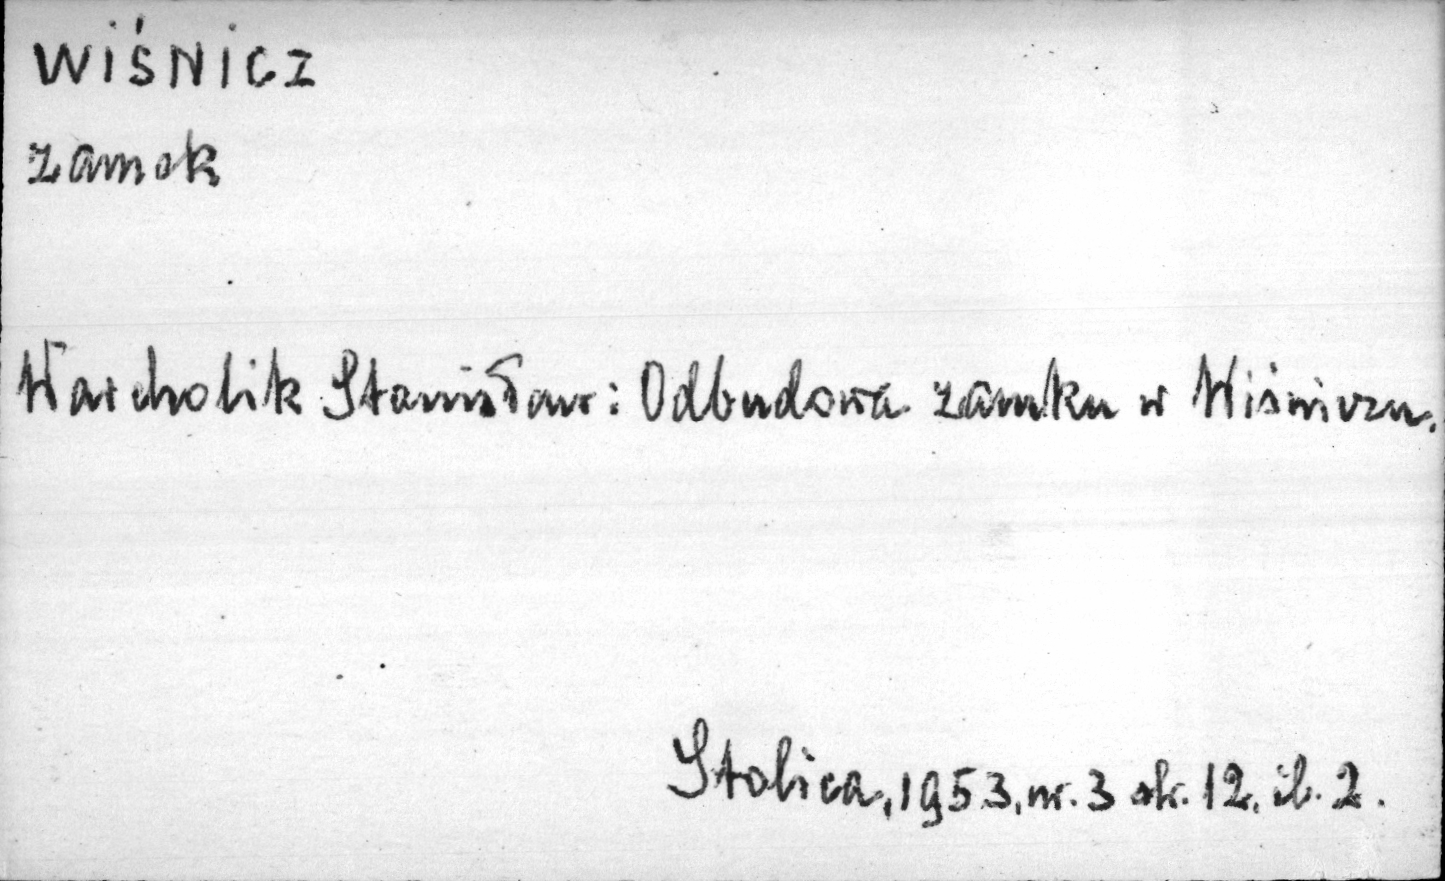 WIŚNICZ
zamek
Warcholik Stanisław: Odbudowa zamku w Wiśniczu.
Stolica, 1953, nr. 3 str. 12, il. 2.